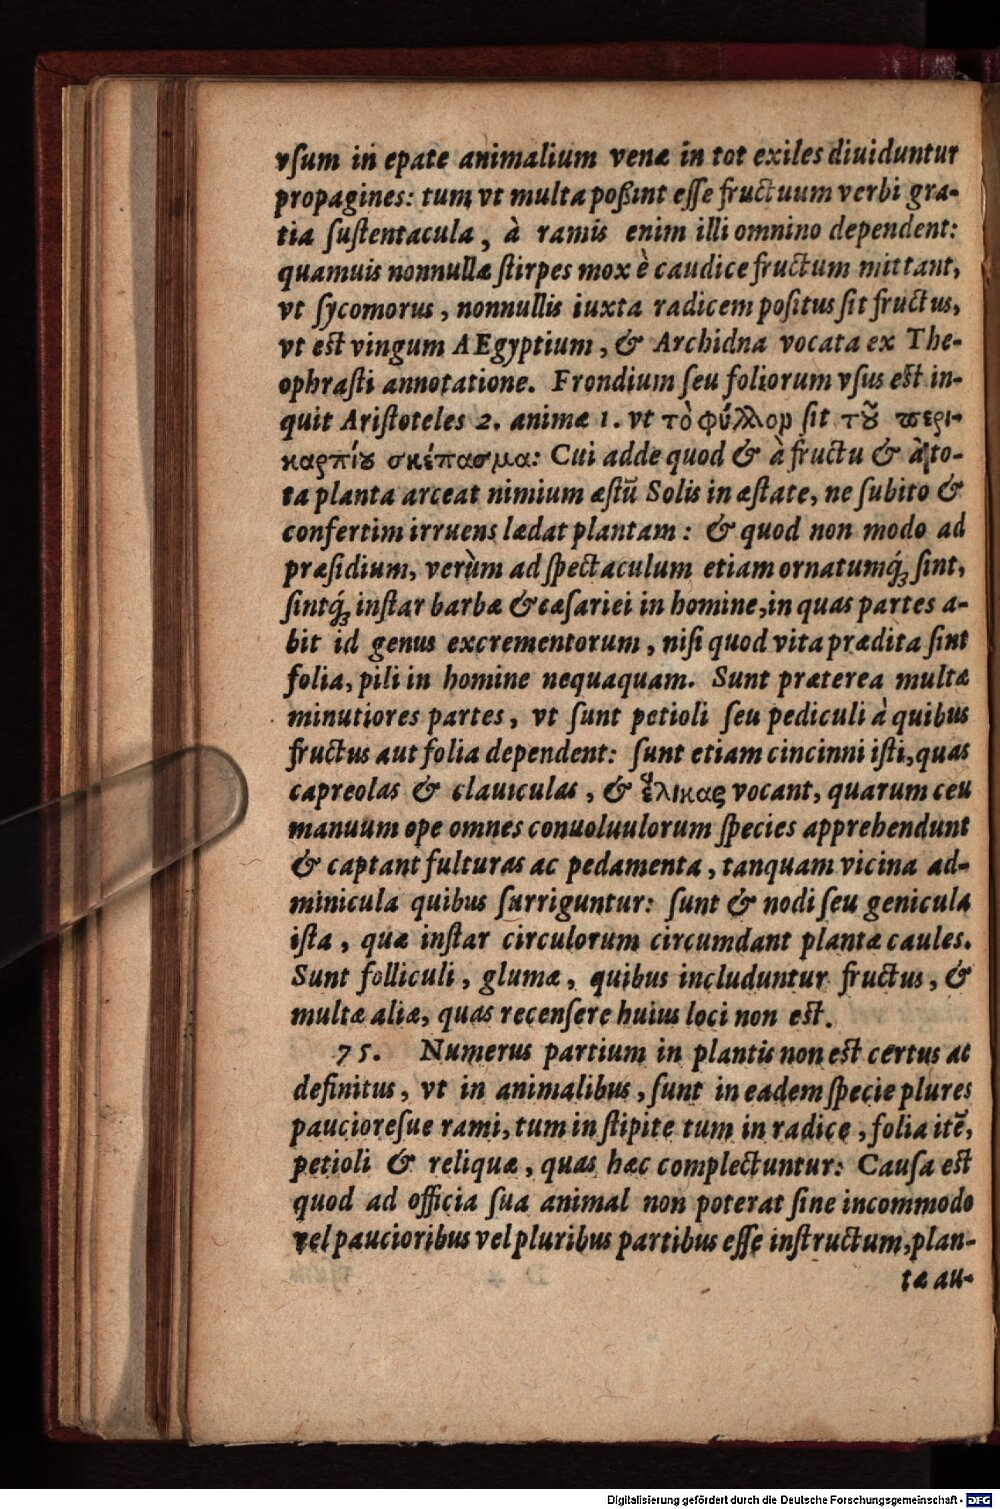 vſum in epate animalium venæ in tot exiles diuiduntur
propagines: tum vt multa poßint eſſe fructuum verbi gra-
tia ſuſtentacula, à ramis enim illi omnino dependent:
quamuis nonnullæ ſtirpes mox è caudice fructum mittant,
vt ſycomorus, nonnullis iuxta radicem poſitus ſit fructus,
vt est vingum AEgyptium, & Archidna vocata ex The-
ophraſti annotatione. Frondium ſeu foliorum vſus est in-
quit Ariſtoteles 2. animæ 1. vt τὸ φύλλον ſit τοῦ περι-
καρπίου σκέπασμα: Cui adde quod & à fructu & à to-
ta planta arceat nimium æstū Solis in æſtate, ne ſubito &
confertim irruens lædat plantam: & quod non modo ad
præſidium, verùm ad ſpectaculum etiam ornatumq́; ſint,
ſintq́; inſtar barbæ & cæſariei in homine, in quas partes a-
bit id genus excrementorum, niſi quod vita prædita ſint
folia, pili in homine nequaquam. Sunt præterea multæ
minutiores partes, vt ſunt petioli ſeu pediculi à quibus
fructus aut folia dependent: ſunt etiam cincinni iſti, quas
capreolas & clauiculas, & ἕλικας vocant, quarum ceu
manuum ope omnes conuoluulorum ſpecies apprehendunt
& captant fulturas ac pedamenta, tanquam vicina ad-
minicula quibus ſurriguntur: ſunt & nodi ſeu genicula
iſta, quæ inſtar circulorum circumdant plantæ caules.
Sunt folliculi, glumæ, quibus includuntur fructus, &
multæ aliæ, quas recenſere huius loci non est.
75. Numerus partium in plantis non est certus ac
definitus, vt in animalibus, ſunt in eadem ſpecie plures
paucioreſue rami, tum in ſtipite tum in radice, folia itē,
petioli & reliquæ, quas hæc complectuntur: Cauſa est
quod ad officia ſua animal non poterat ſine incommodo
vel paucioribus vel pluribus partibus eſſe inſtructum, plan-
tæ au-
Digitalisierung gefördert durch die Deutsche Forschungsgemeinschaft - DFG